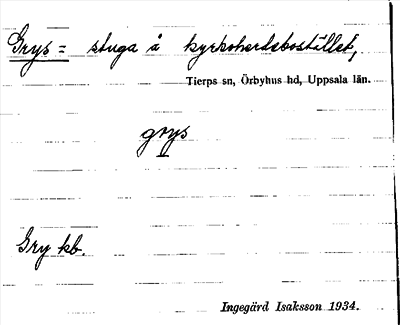 Grys = stuga å kyrkoherdebostället,
Tierps sn, Örbyhus hd, Uppsala län.
grys
Gry kb.
Ingegärd Isaksson 1934.